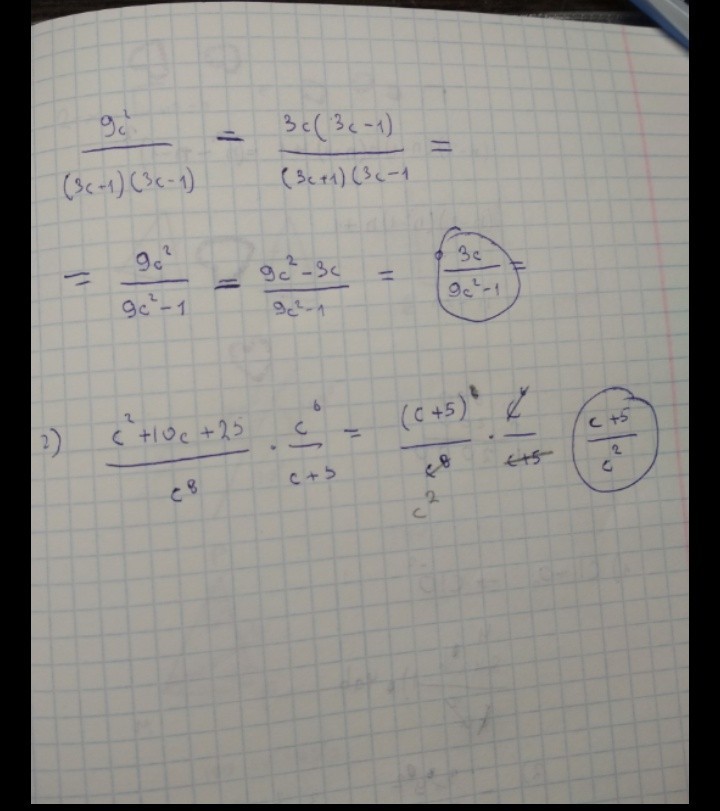 9c² / (3c-1)(3c-1) = 3c(3c-1) / (3c+1)(3c-1 =
= 9c² / 9c²-1 = 9c²-3c / 9c²-1 = 3c / 9c²-1 =
2) c²+10c+25 / c⁸ · c⁶ / c+5 = (c+5) / c⁸ · / c+5 c+5 / c²
c²